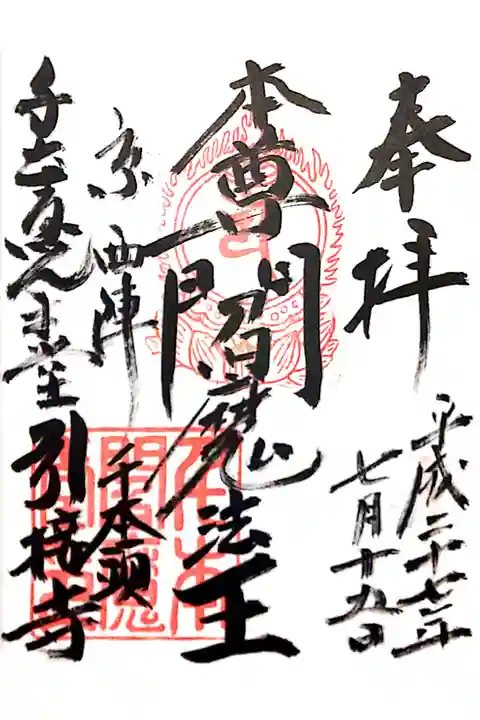 奉拝
平成二十七年
七月十五日
本尊閻魔法王
京西陣
千本頭
千本ゑんま堂引接寺